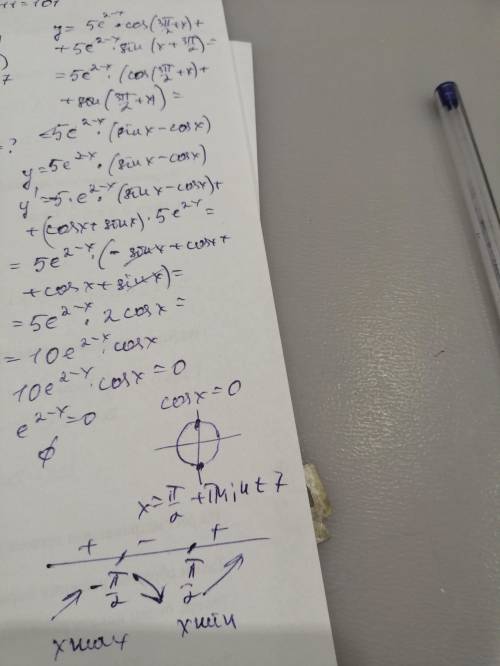 y = 5e^{2-x} · cos(3π/2 + x) +
+ 5e^{2-x} · sin(x + 3π/2) =
= 5e^{2-x} · (cos(3π/2 + x) +
+ sin(3π/2 + x) =
= 5e^{2-x} · (sinx - cosx)
y = 5e^{2-x} · (sinx - cosx)
y' = -5 · e^{2-x} · (sinx - cosx) +
+ (cosx + sinx) · 5e^{2-x} =
= 5e^{2-x} · (- sinx + cosx +
+ cosx + sinx) =
= 5e^{2-x} · 2cosx =
= 10e^{2-x} · cosx
10e^{2-x} · cosx = 0
e^{2-x} = 0 cosx = 0
∅
x = π/2 + πn; n ∈ Z
+ - +
-π/2 π/2
xmax xmin